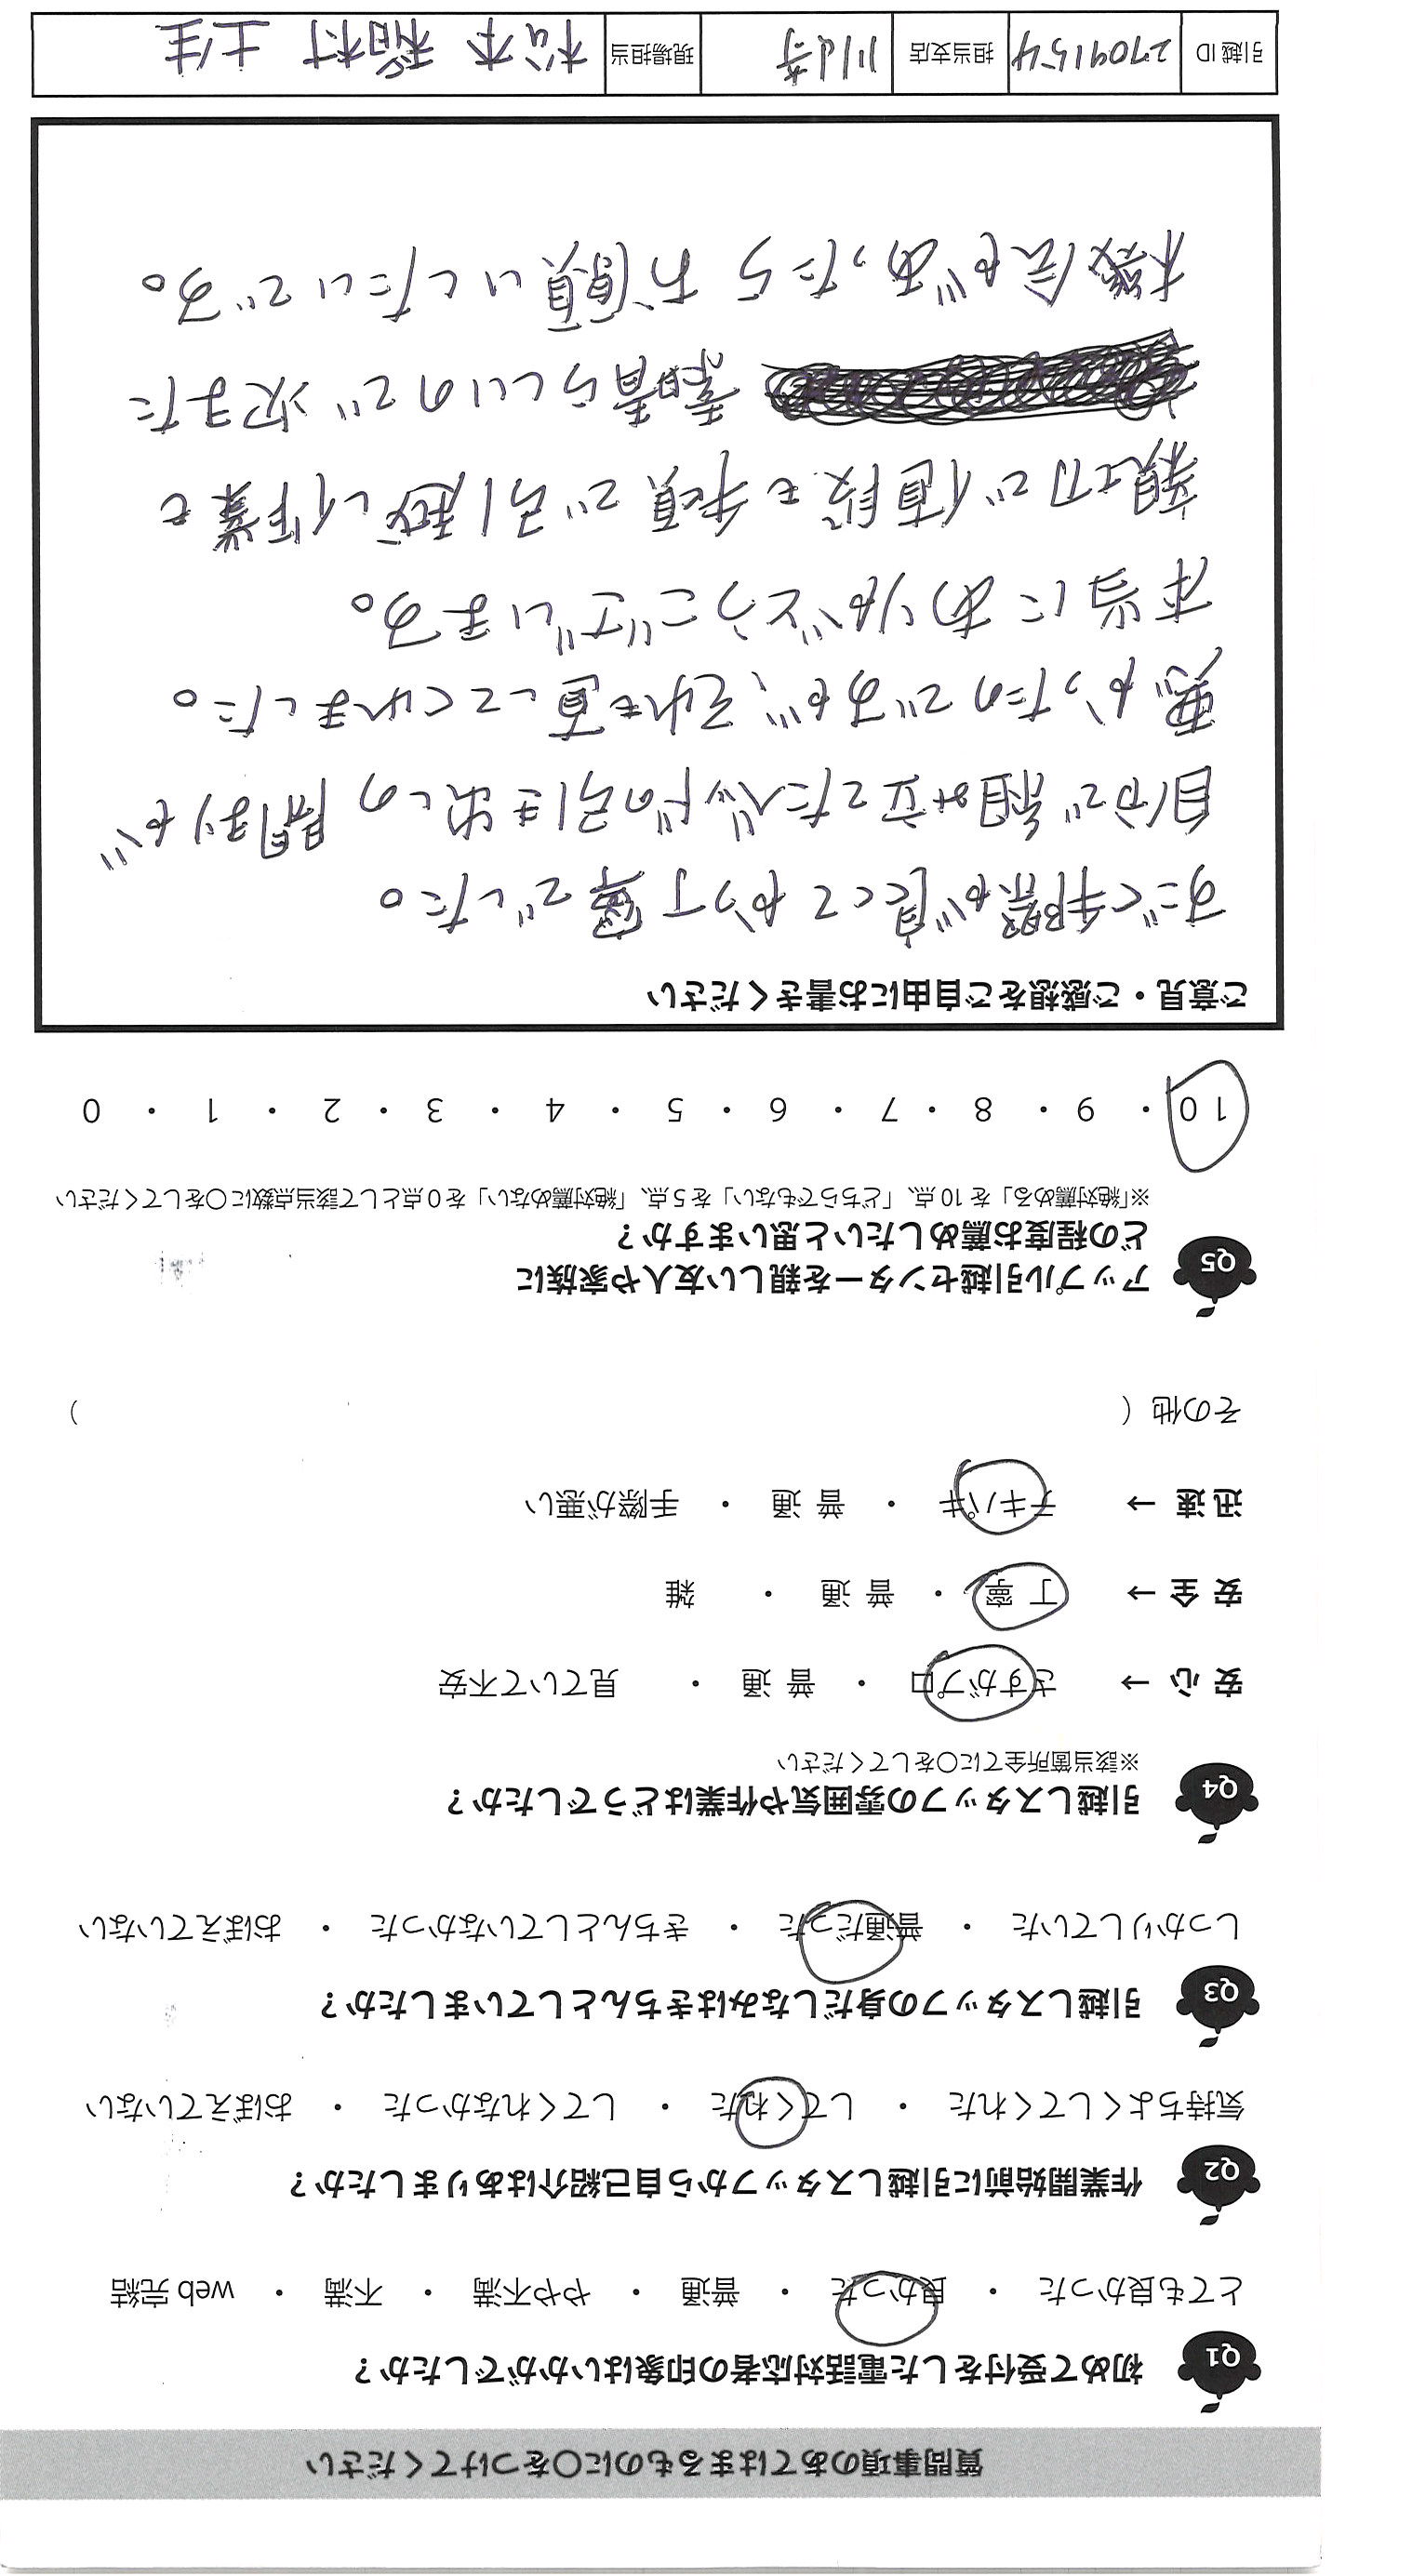 質問事項のあてはまるものに○をつけてください
Q1 初めて受付をした電話対応者の印象はいかがでしたか？
とても良かった ・ 良かった ・ 普通 ・ やや不満 ・ 不満 ・ web 完結
Q2 作業開始前に引越しスタッフから自己紹介はありましたか？
気持ちよくしてくれた ・ してくれた ・ してくれなかった ・ おぼえていない
Q3 引越しスタッフの身だしなみはきちんとしていましたか？
しっかりしていた ・ 普通だった ・ きちんとしていなかった ・ おぼえていない
Q4 引越しスタッフの雰囲気や作業はどうでしたか？
※該当箇所全てに○をしてください
安 心 → さすがプロ ・ 普 通 ・ 見ていて不安
安 全 → 丁 寧 ・ 普 通 ・ 雑
迅 速 → テキパキ ・ 普 通 ・ 手際が悪い
その他（ ）
Q5 アップル引越センターを親しい友人や家族に
どの程度お薦めしたいと思いますか？
※「絶対薦める」を 10 点、「どちらでもない」を 5 点、「絶対薦めない」を 0 点として該当点数に○をしてください
10 ・ 9 ・ 8 ・ 7 ・ 6 ・ 5 ・ 4 ・ 3 ・ 2 ・ 1 ・ 0
ご意見・ご感想をご自由にお書きください
すごく手際が良くてかつ丁寧でした。
自分で組み立てたベッドの引き出しの閉まりが
悪かったのですが、それも直してくれました。
本当にありがとうございます。
親切で値段も手頃で引越し作業も
素晴らしいので次また
機会があったらお願いしたいです。
引越 ID 2709154 担当支店 川崎 現場担当 松本 稲村 土佳